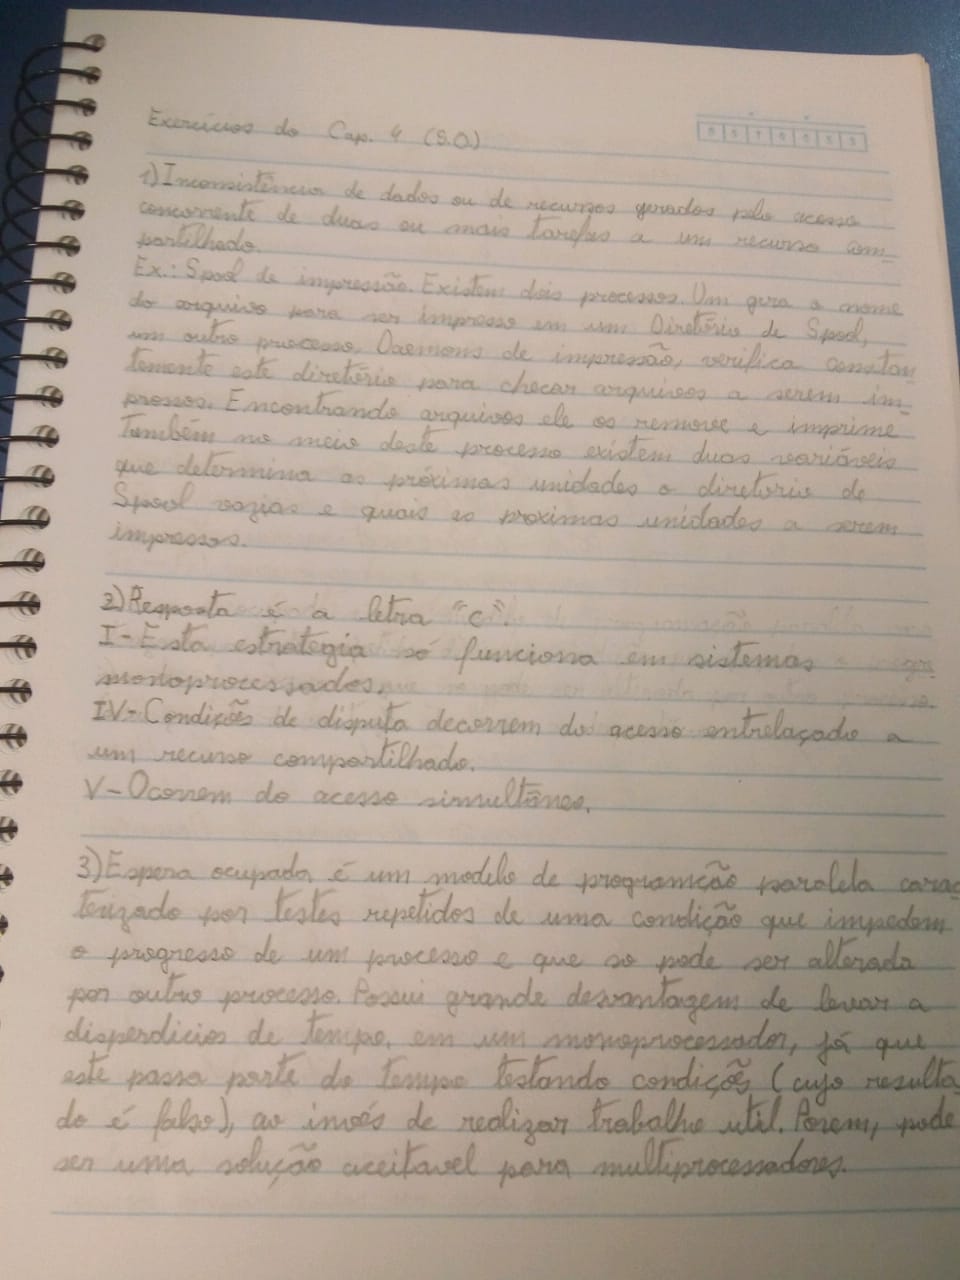 Exercícios do Cap. 4 (S.O.)
1) Inconsistência de dados ou de recursos gerados pelo acesso
concorrente de duas ou mais tarefas a um recurso com-
partilhado.
Ex.: Spool de impressão. Existem dois processos. Um gera o nome
do arquivo para ser impresso em um Diretório de Spool,
um outro processo, Daemons de impressão, verifica constan
temente este diretório para checar arquivos a serem im-
pressos. Encontrando arquivos ele os remove e imprime
Também no meio deste processo existem duas variáveis
que determina as próximas unidades o diretorio de
Spool vazias e quais as proximas unidades a serem
impressos.
2) Resposta é a letra "c".
I - Esta estrategia só funciona em sistemas
monoprocessados.
IV - Condições de disputa decorrem do acesso entrelaçado a
um recurso compartilhado.
V - Ocorrem do acesso simultâneo.
3) Espera ocupada é um modelo de programção paralela carac
terizado por testes repetidos de uma condição que impedem
o progresso de um processo e que so pode ser alterada
por outro processo. Possui grande desvantagem de levar a
disperdicios de tempo, em um monoprocessador, já que
este passa parte do tempo testando condições (cujo resulta
do é falso), ao invés de realizar trabalho util. Porem, pode
ser uma solução aceitavel para multiprocessadores.